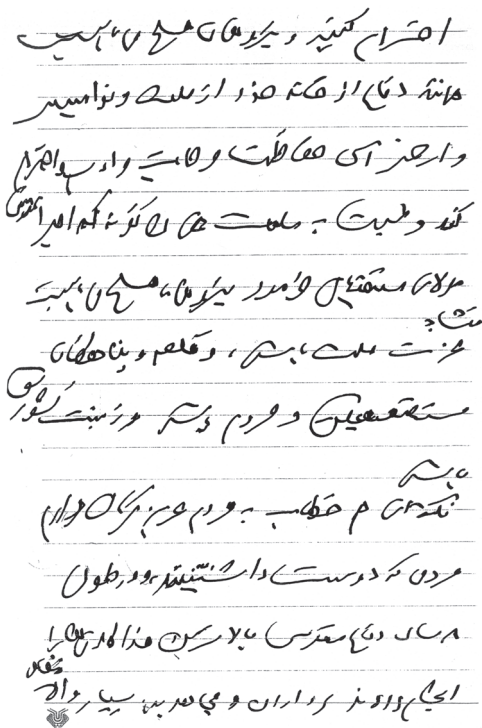 احترام کنید و نیروهای مسلح می‌بایست
مانند دفاع از خانه خود از ملت و نوامیس
و ارض آن حفاظت و حمایت و ادب و احترام
کنند و نسبت به ملت همان گونه که امیرالمؤمنین
مولای متقیان فرمود نیروهای مسلح می‌بایست
منشاء
عزت ملت باشد، و قلعه و پناهگاه
مستضعفین و مردم باشد و زینت کشورش
باشد
نکته‌ای هم خطاب به مردم عزیز کرمان دارم
مردمی که دوست داشتنی‌اند و در طول
۸ سال دفاع مقدس بالاترین فداکاری‌ها را
انجام دادند سرداران و مجاهدین بسیار والا
مقام